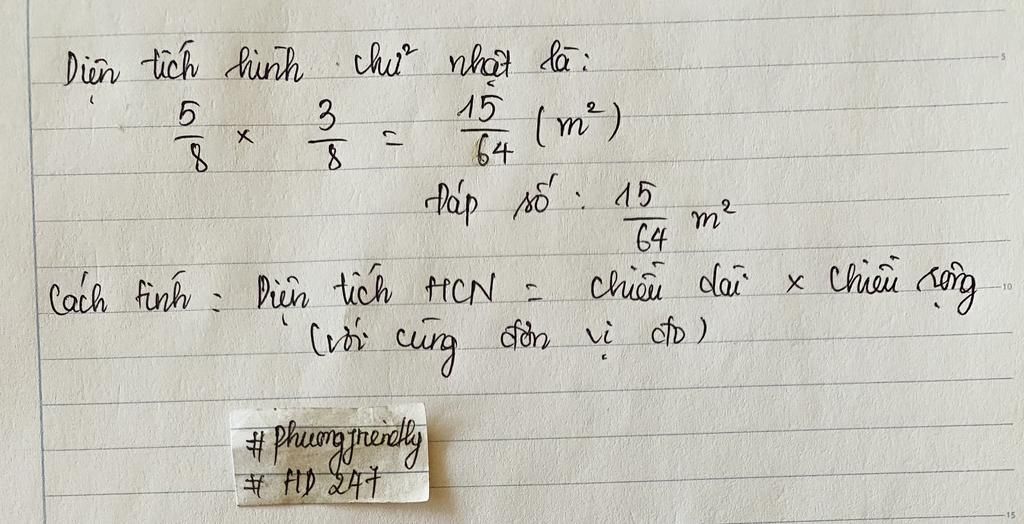 Diện tích hình chữ nhật là:
5/8 × 3/8 = 15/64 (m²)
Đáp số: 15/64 m²
Cách tính: Diện tích HCN = chiều dài × chiều rộng
(với cùng đơn vị đo)
#phuongfriendly
# HD 247
5
10
15